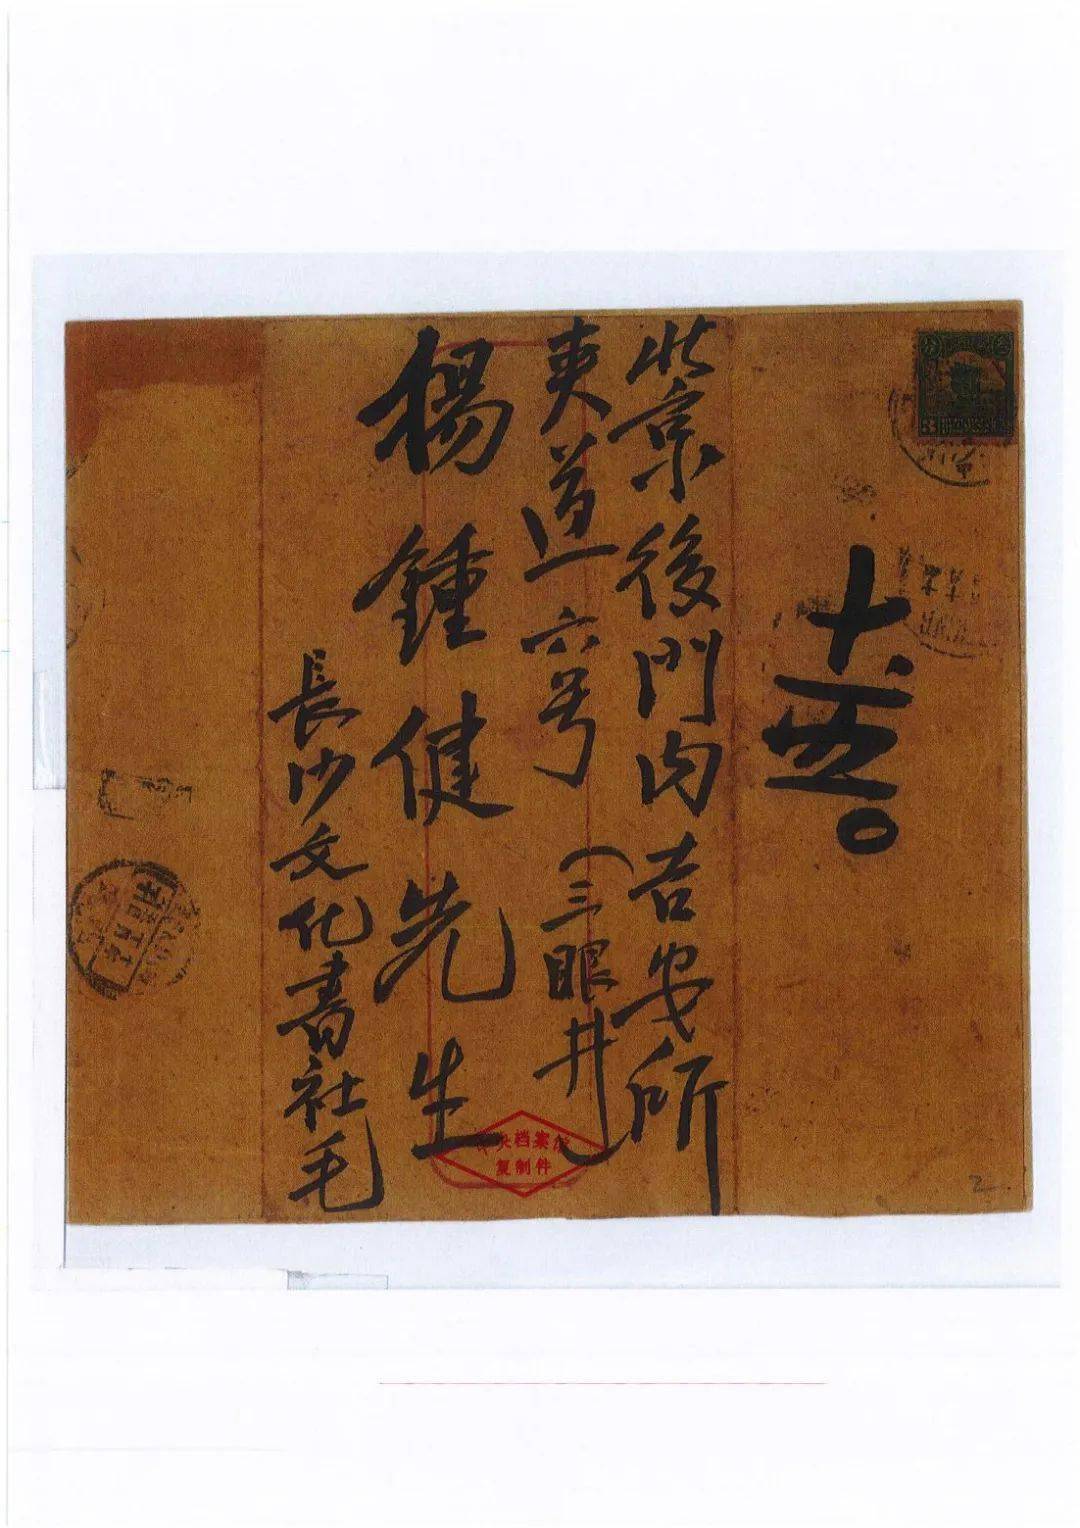 北京後門内吉安所
夾道六号（三眼井）
楊鍾健先生
長沙文化書社毛
中央档案馆
复制件
2